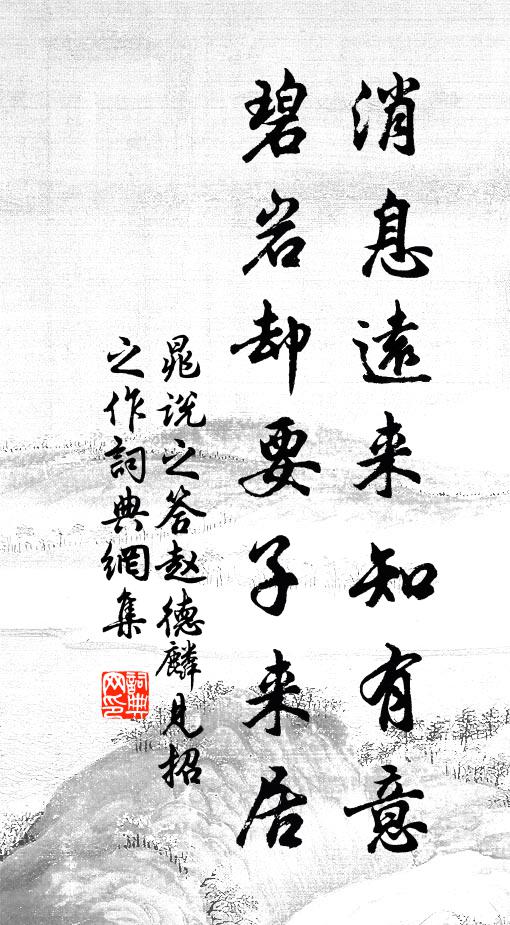 消息遠来知有意
碧岩却要子来居
晁説之答赵德麟見招
之作詞典網集
詞典网印